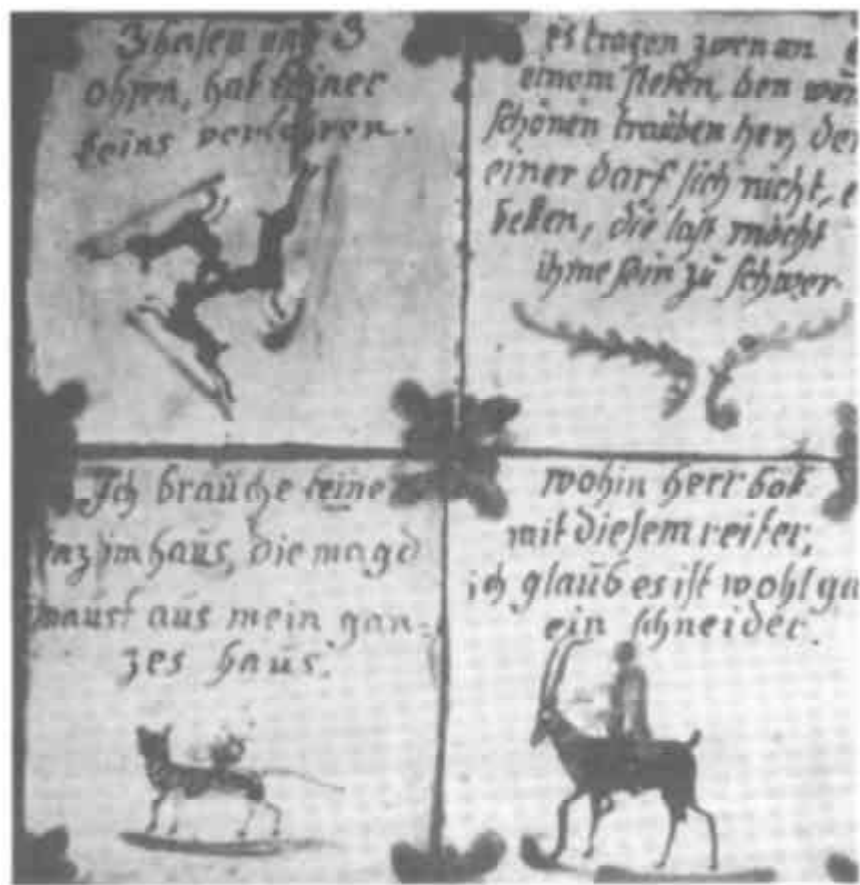 3 hasen und 3
ohren, hat keiner
keins verlohren.
es tragen zwen an
einem steken, den
schönen trauben her,
einer darf sich nicht,
die last möcht
ihme sein zu schwer.
Ich brauche keine
im haus, die magd
maust aus mein gan-
zes haus.
wohin herr bok
mit diesem reiter,
ich glaub es ist wohl
ein schneider.